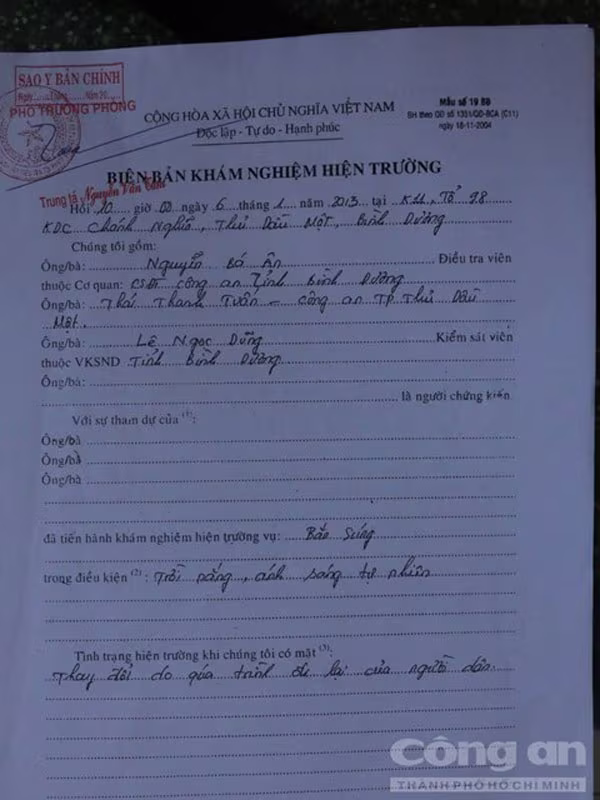 SAO Y BẢN CHÍNH
Ngày......tháng......Năm 20.....
PHÓ TRƯỞNG PHÒNG
Trung tá Nguyễn Văn
CỘNG HÒA XÃ HỘI CHỦ NGHĨA VIỆT NAM
Độc lập - Tự do - Hạnh phúc
Mẫu số 19 BB
BH theo QĐ số 1351/QĐ-BCA (C11)
ngày 18-11-2004
BIÊN BẢN KHÁM NGHIỆM HIỆN TRƯỜNG
Hồi 10 giờ 00 ngày 6 tháng 1 năm 2013 tại K11, Tổ 98
KDC Chánh Nghĩa, Thủ Dầu Một, Bình Dương
Chúng tôi gồm:
Ông/bà: Nguyễn Bá Ân Điều tra viên
thuộc Cơ quan: CSĐT công an Tỉnh Bình Dương
Ông/bà: Thái Thanh Tuấn - công an TP Thủ Dầu
Một.
Ông/bà: Lê Ngọc Dũng Kiểm sát viên
thuộc VKSND Tỉnh Bình Dương
Ông/bà:
là người chứng kiến
Với sự tham dự của (1):
Ông/bà
Ông/bà
Ông/bà
đã tiến hành khám nghiệm hiện trường vụ: Bắn Súng
trong điều kiện (2): Trời nắng, ánh sáng tự nhiên
Tình trạng hiện trường khi chúng tôi có mặt (3):
Thay đổi do quá trình đi lại của người dân.
Công an
THÀNH PHỐ HỒ CHÍ MINH